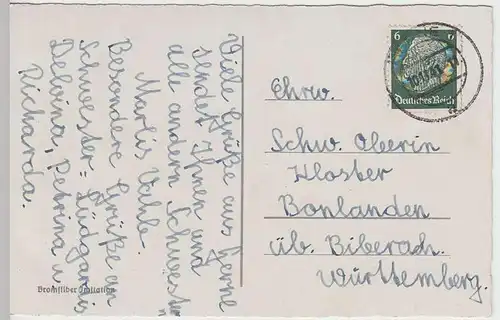 Viele Grüße aus Ferne
sendet Ihnen und
alle andern Schwestern
Marlis Vahle.
Besondere Grüße an
Schwester: Lüdgardis
Delvina, Petrina u.
Richarda.
Bromsilber Imitation
6
Deutsches Reich
Ehrw.
Schw. Oberin
Kloster
Bonlanden
üb. Biberach.
Württemberg.